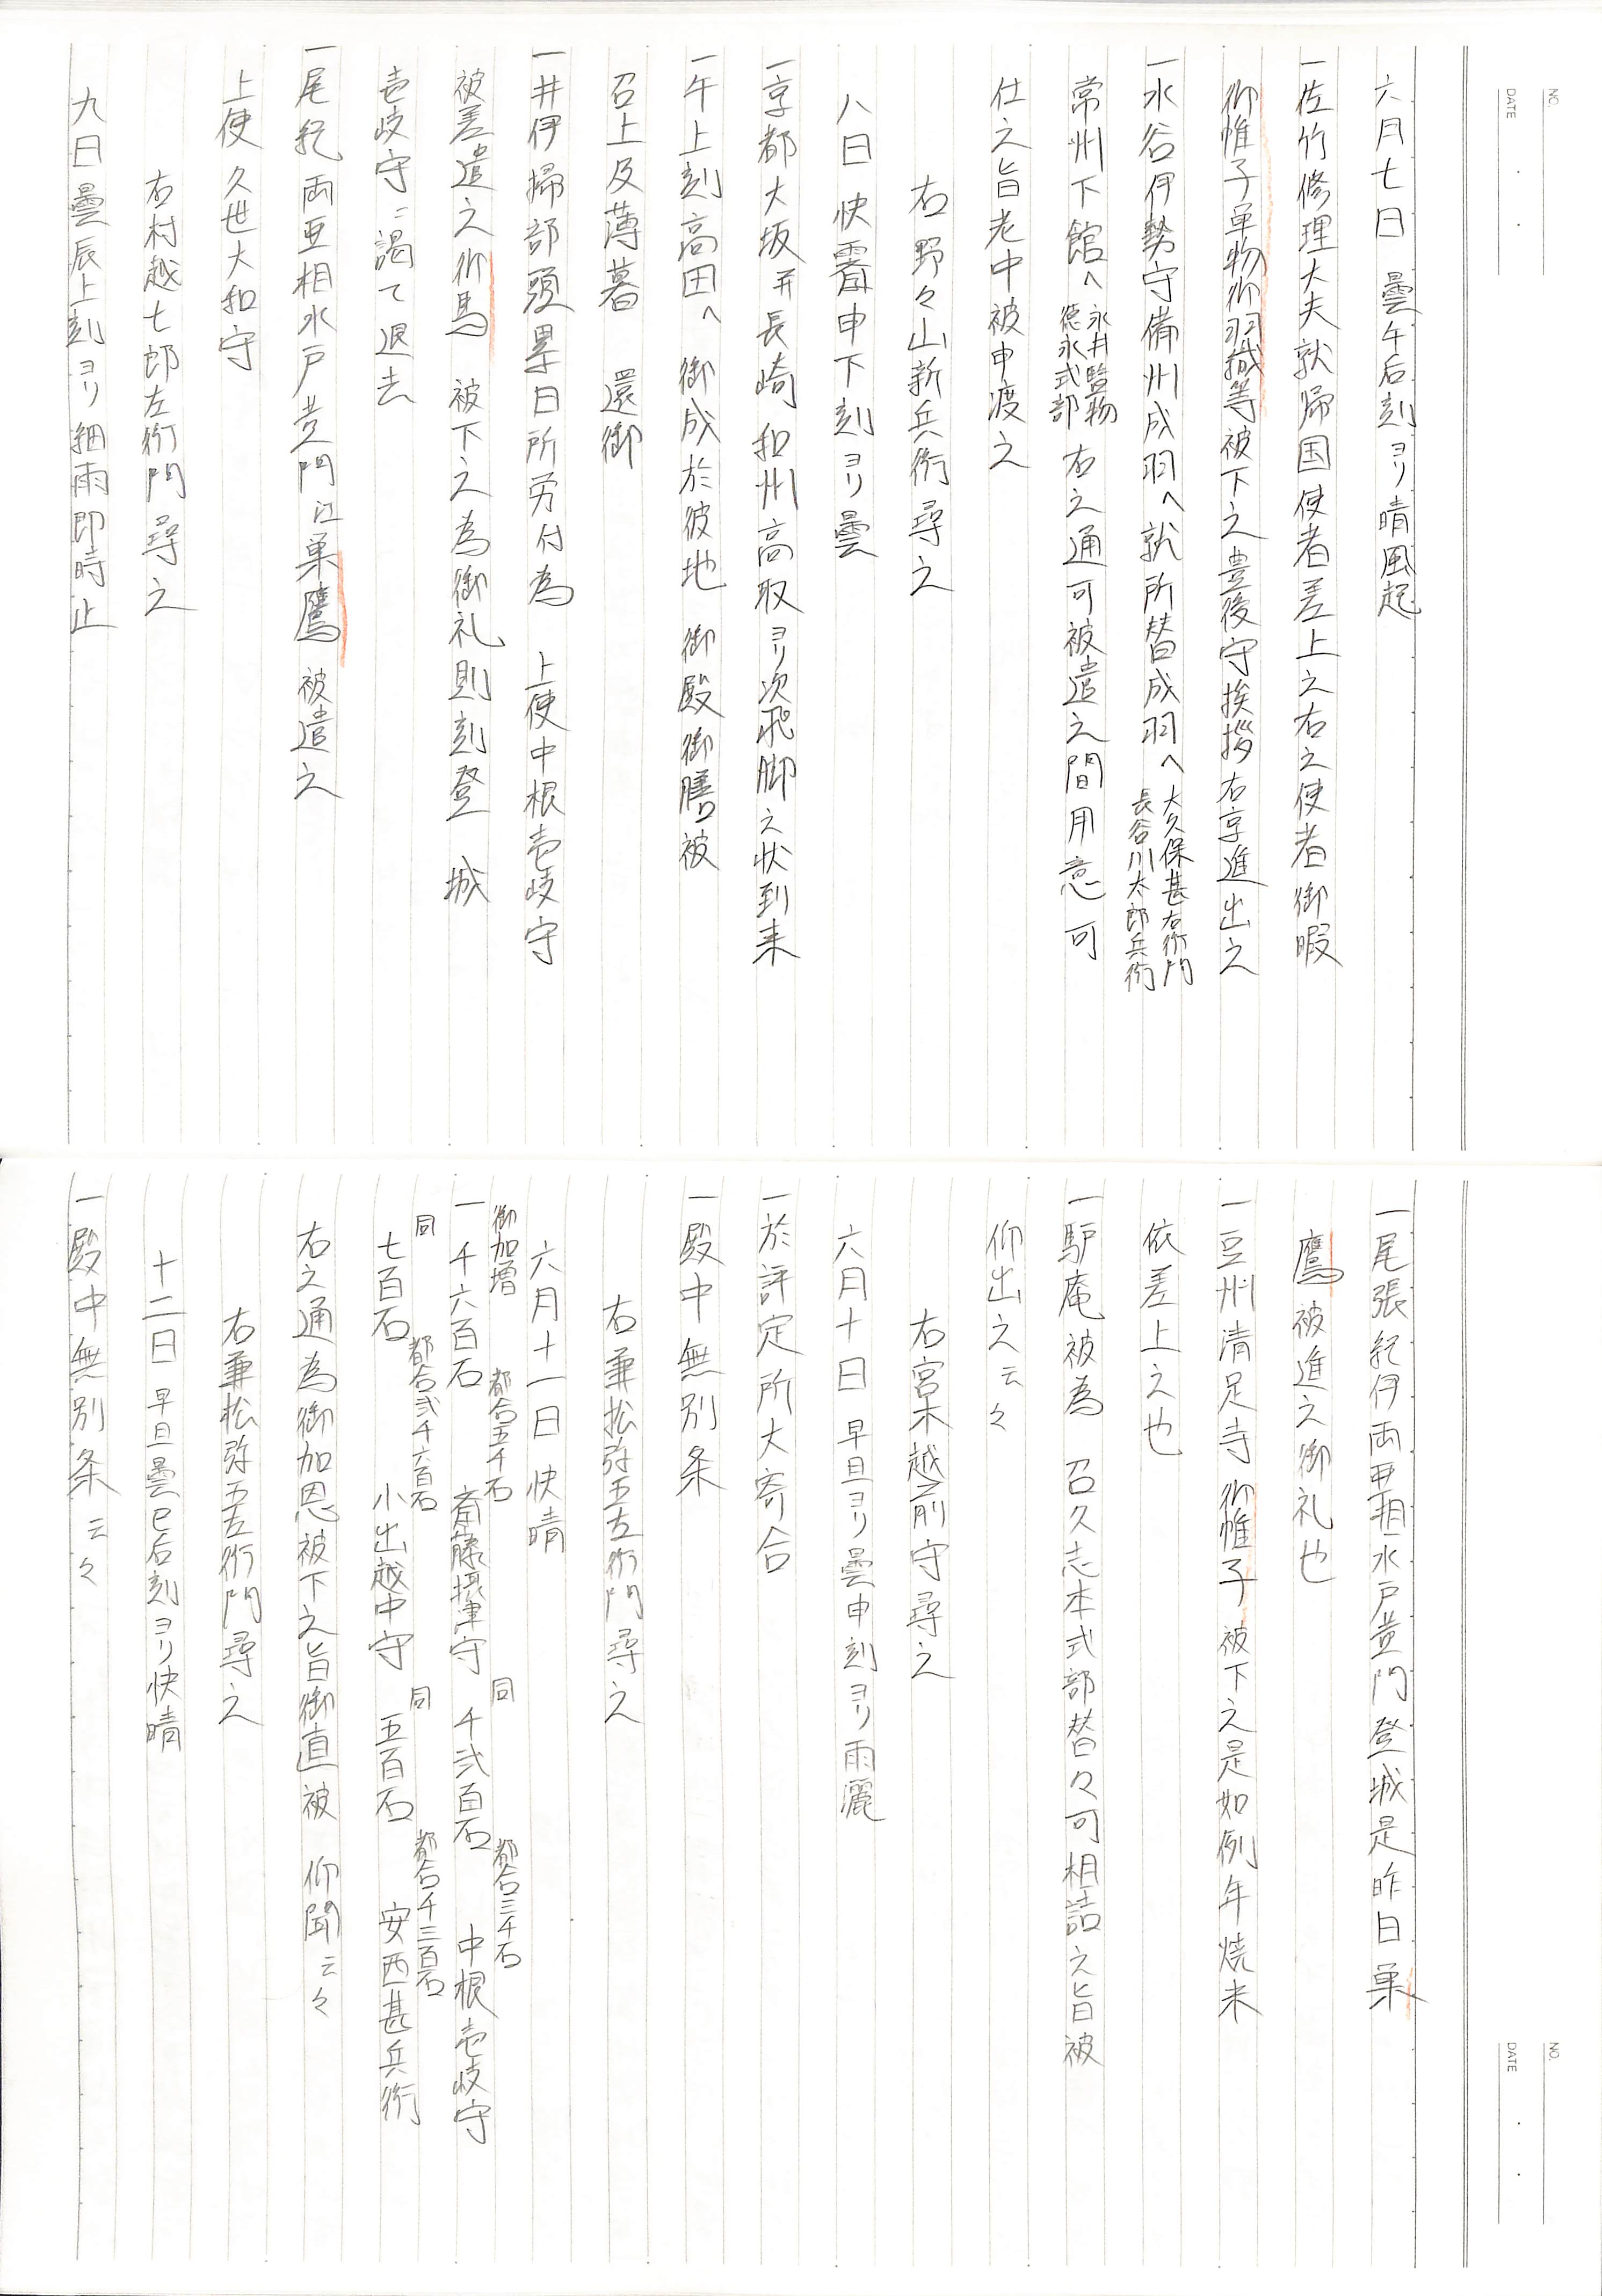 NO.
DATE
六月七日 曇午后刻ヨリ晴風起
一佐竹修理大夫就帰国使者差上之右之使者御暇
仰帷子単物仰羽織等被下之豊後守挨拶右京進出之
一水谷伊勢守備州成羽へ就所替成羽へ大久保甚右衛門
長谷川太郎兵衛
常州下館へ永井監物
徳永式部
右之通可被遣之間用意可
仕之旨老中被申渡之
右野々山新兵衛尋之
八日 快霽申下刻ヨリ曇
一京都大坂并長崎和州高取ヨリ次飛脚之状到来
一午上刻高田へ 御成於彼地 御殿御膳被
召上及薄暮 還御
一井伊掃部頭累日所労付為 上使中根壱岐守
被差遣之仰馬 被下之為御礼則刻登 城
壱岐守ニ謁て退去
一尾紀両亜相水戸黄門江巣鷹被遣之
上使久世大和守
右村越七郎左衛門尋之
九日曇辰上刻ヨリ細雨即時止
NO.
DATE
一尾張紀伊両亜相水戸黄門登城是昨日巣
鷹被進之御礼也
一豆州清足寺仰帷子被下之是如例年焼米
依差上之也
一驢庵被為 召久志本式部替々可相詰之旨被
仰出之云々
右宮木越前守尋之
六月十日 早旦ヨリ曇申刻ヨリ雨灑
一於評定所大寄合
一殿中無別条
右兼松弥五左衛門尋之
六月十一日 快晴
御加増
一千六百石 都合五千石 斎藤摂津守 同 千弐百石 都合三千石 中根壱岐守
同
七百石 都合弐千六百石 小出越中守 同 五百石 都合千三百石 安西甚兵衛
右之通為御加恩被下之旨御直被 仰聞云々
右兼松弥五左衛門尋之
十二日 早旦曇巳后刻ヨリ快晴
一殿中無別条云々